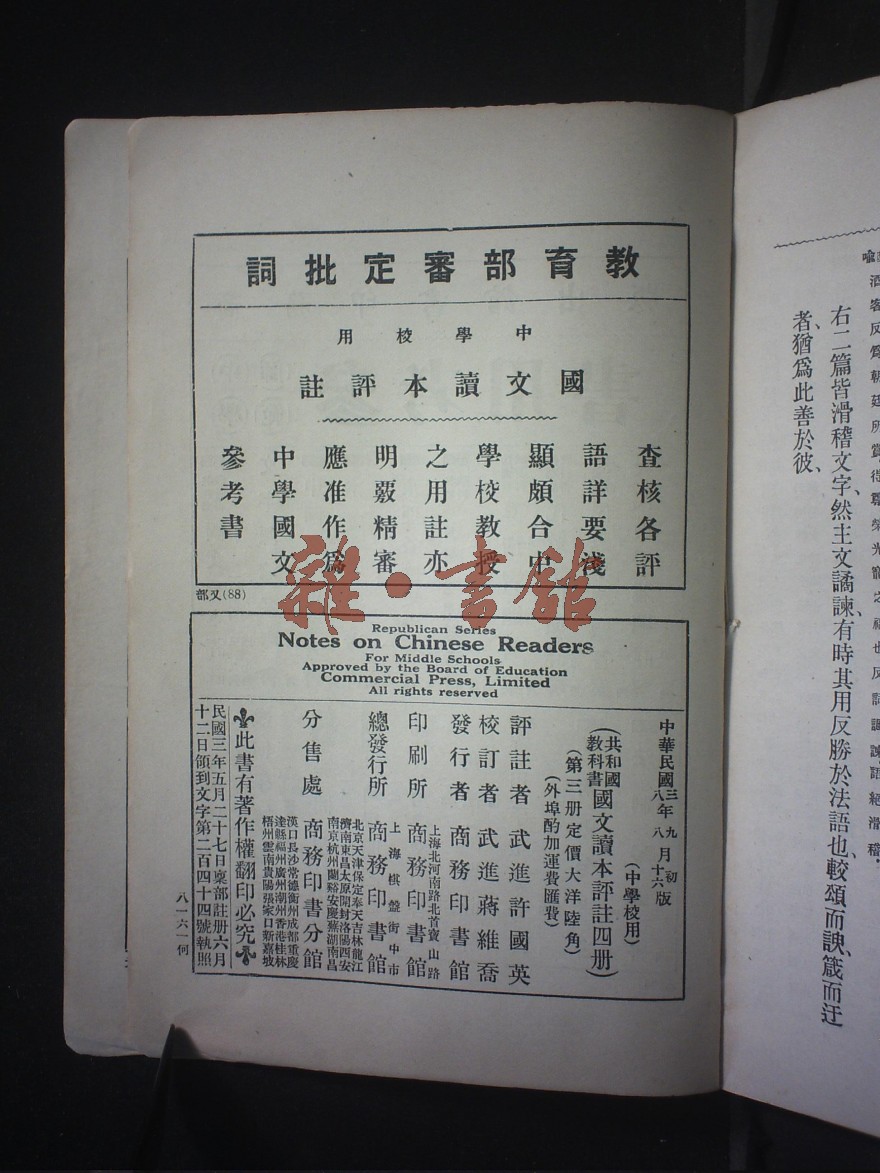 教育部審定批詞
中學校用
國文讀本評註
查核各評
語詳要淺
顯頗合中
學校教授
之用註亦
明覈精審
應准作爲
中學國文
參考書
(88)又部
雜·書館
Republican Series
Notes on Chinese Readers
For Middle Schools
Approved by the Board of Education
Commercial Press, Limited
All rights reserved
中華民國三年九月初版
八年八月十六版
(中學校用)
(共和國教科書國文讀本評註四册)
(第三册定價大洋陸角)
(外埠酌加運費匯費)
評註者 武進許國英
校訂者 武進蔣維喬
發行者 商務印書館
上海北河南路北首寶山路
印刷所 商務印書館
上海棋盤街中市
總發行所 商務印書館
北京天津保定奉天吉林龍江
濟南東昌太原開封洛陽西安
南京杭州蘭谿安慶蕪湖南昌
分售處 商務印書分館
漢口長沙常德衡州成都重慶
達縣福州廣州潮州香港桂林
梧州雲南貴陽張家口新嘉坡
此書有著作權翻印必究
民國三年五月二十七日稟部註册六月
十二日領到文字第二百四十四號執照
八一六一何
酒客反爲朝廷所賞得尊榮光寵之福也反詞諷諫語絕滑稽
右二篇皆滑稽文字、然主文譎諫、有時其用反勝於法語也、較頌而諛、箴而迂
者、猶爲此善於彼、